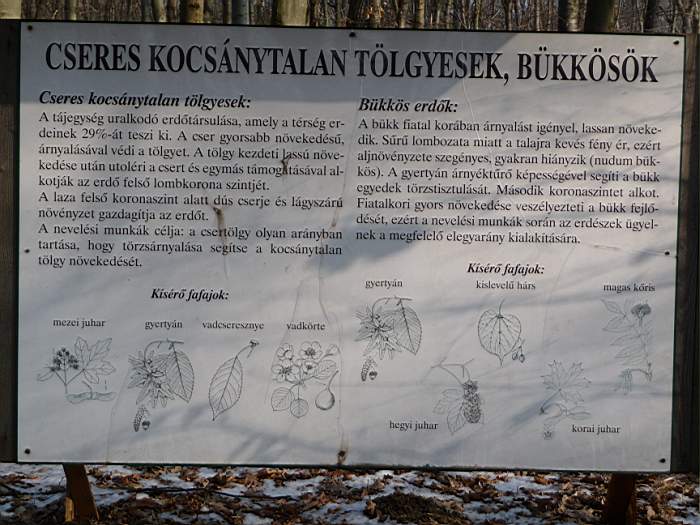 CSERES KOCSÁNYTALAN TÖLGYESEK, BÜKKÖSÖK
Cseres kocsánytalan tölgyesek:
A tájegység uralkodó erdőtársulása, amely a térség er-
deinek 29%-át teszi ki. A cser gyorsabb növekedésű,
árnyalásával védi a tölgyet. A tölgy kezdeti lassú növe-
kedése után utoléri a csert és egymás támogatásával al-
kotják az erdő felső lombkorona szintjét.
A laza felső koronaszint alatt dús cserje és lágyszárú
növényzet gazdagítja az erdőt.
A nevelési munkák célja: a csertölgy olyan arányban
tartása, hogy törzsárnyalása segítse a kocsánytalan
tölgy növekedését.
Kísérő fafajok:
mezei juhar
gyertyán
vadcseresznye
vadkörte
Bükkös erdők:
A bükk fiatal korában árnyalást igényel, lassan növeke-
dik. Sűrű lombozata miatt a talajra kevés fény ér, ezért
aljnövényzete szegényes, gyakran hiányzik (nudum bük-
kös). A gyertyán árnyéktűrő képességével segíti a bükk
egyedek törzstisztulását. Második koronaszintet alkot.
Fiatalkori gyors növekedése veszélyezteti a bükk fejlő-
dését, ezért a nevelési munkák során az erdészek ügyel-
nek a megfelelő elegyarány kialakítására.
Kísérő fafajok:
gyertyán
kislevelű hárs
magas kőris
hegyi juhar
korai juhar